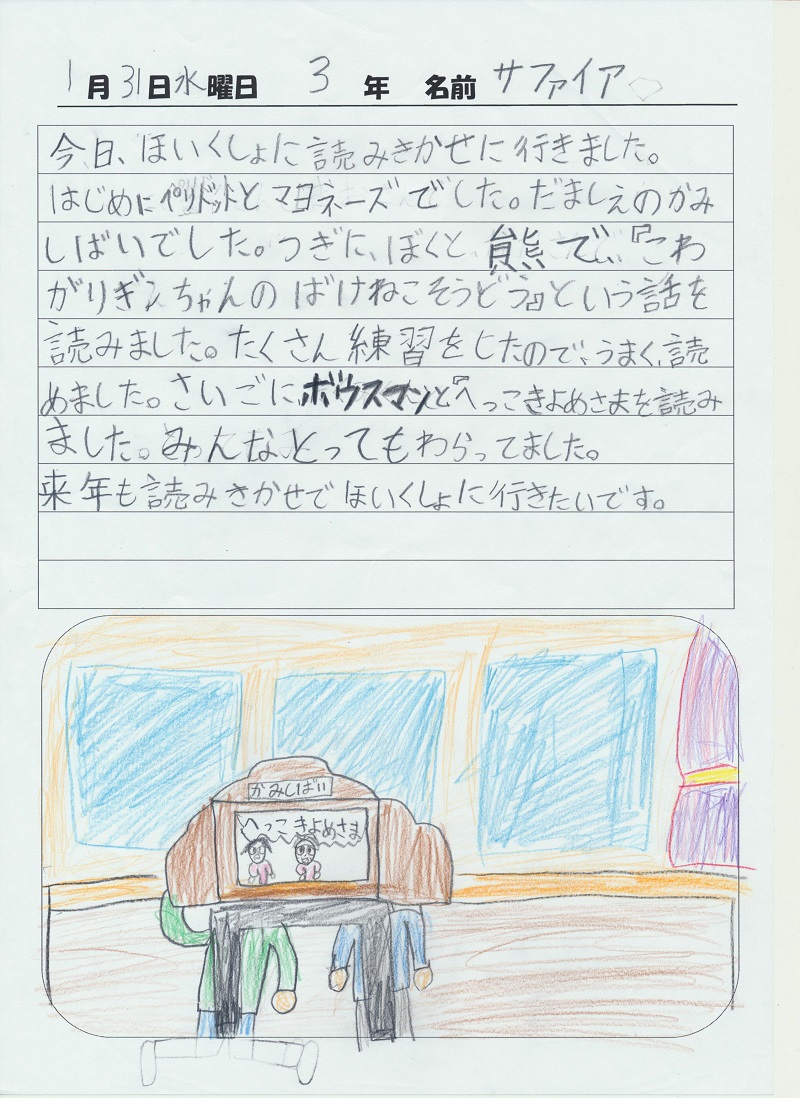 1月31日水曜日 3年 名前 サファイア
今日、ほいくしょに読みきかせに行きました。
はじめにペリドットとマヨネーズでした。だましえのかみ
しばいでした。つぎに、ぼくと、熊で、『こわ
がりギンちゃんのばけねこそうどう』という話を
読みました。たくさん練習をしたので、うまく、読
めました。さいごに、ボウスマンと『へっこきよめさまを読み
ました。みんなとってもわらってました。
来年も読みきかせでほいくしょに行きたいです。
かみしばい
へっこきよめさま